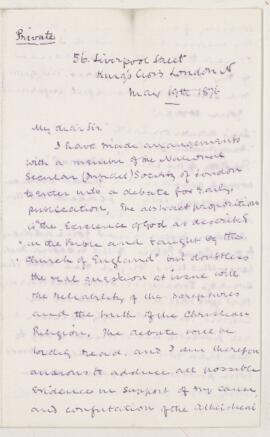 Private
56. Liverpool Street
King's Cross London N
May 19th 1876
My dear Sir
I have made arrangements
with a member of the National
Secular Society of London
to enter into a debate for early
publication. The abstract proposition
is "the Existence of God as described
in the Bible and taught by the
Church of England" but doubtless
the real question at issue will
the reliability of the Scriptures
and the truth of the Christian
Religion. The debate will be
widely read, and I am therefore
anxious to adduce all possible
evidence in support of my cause
and confutation of the Atheistical